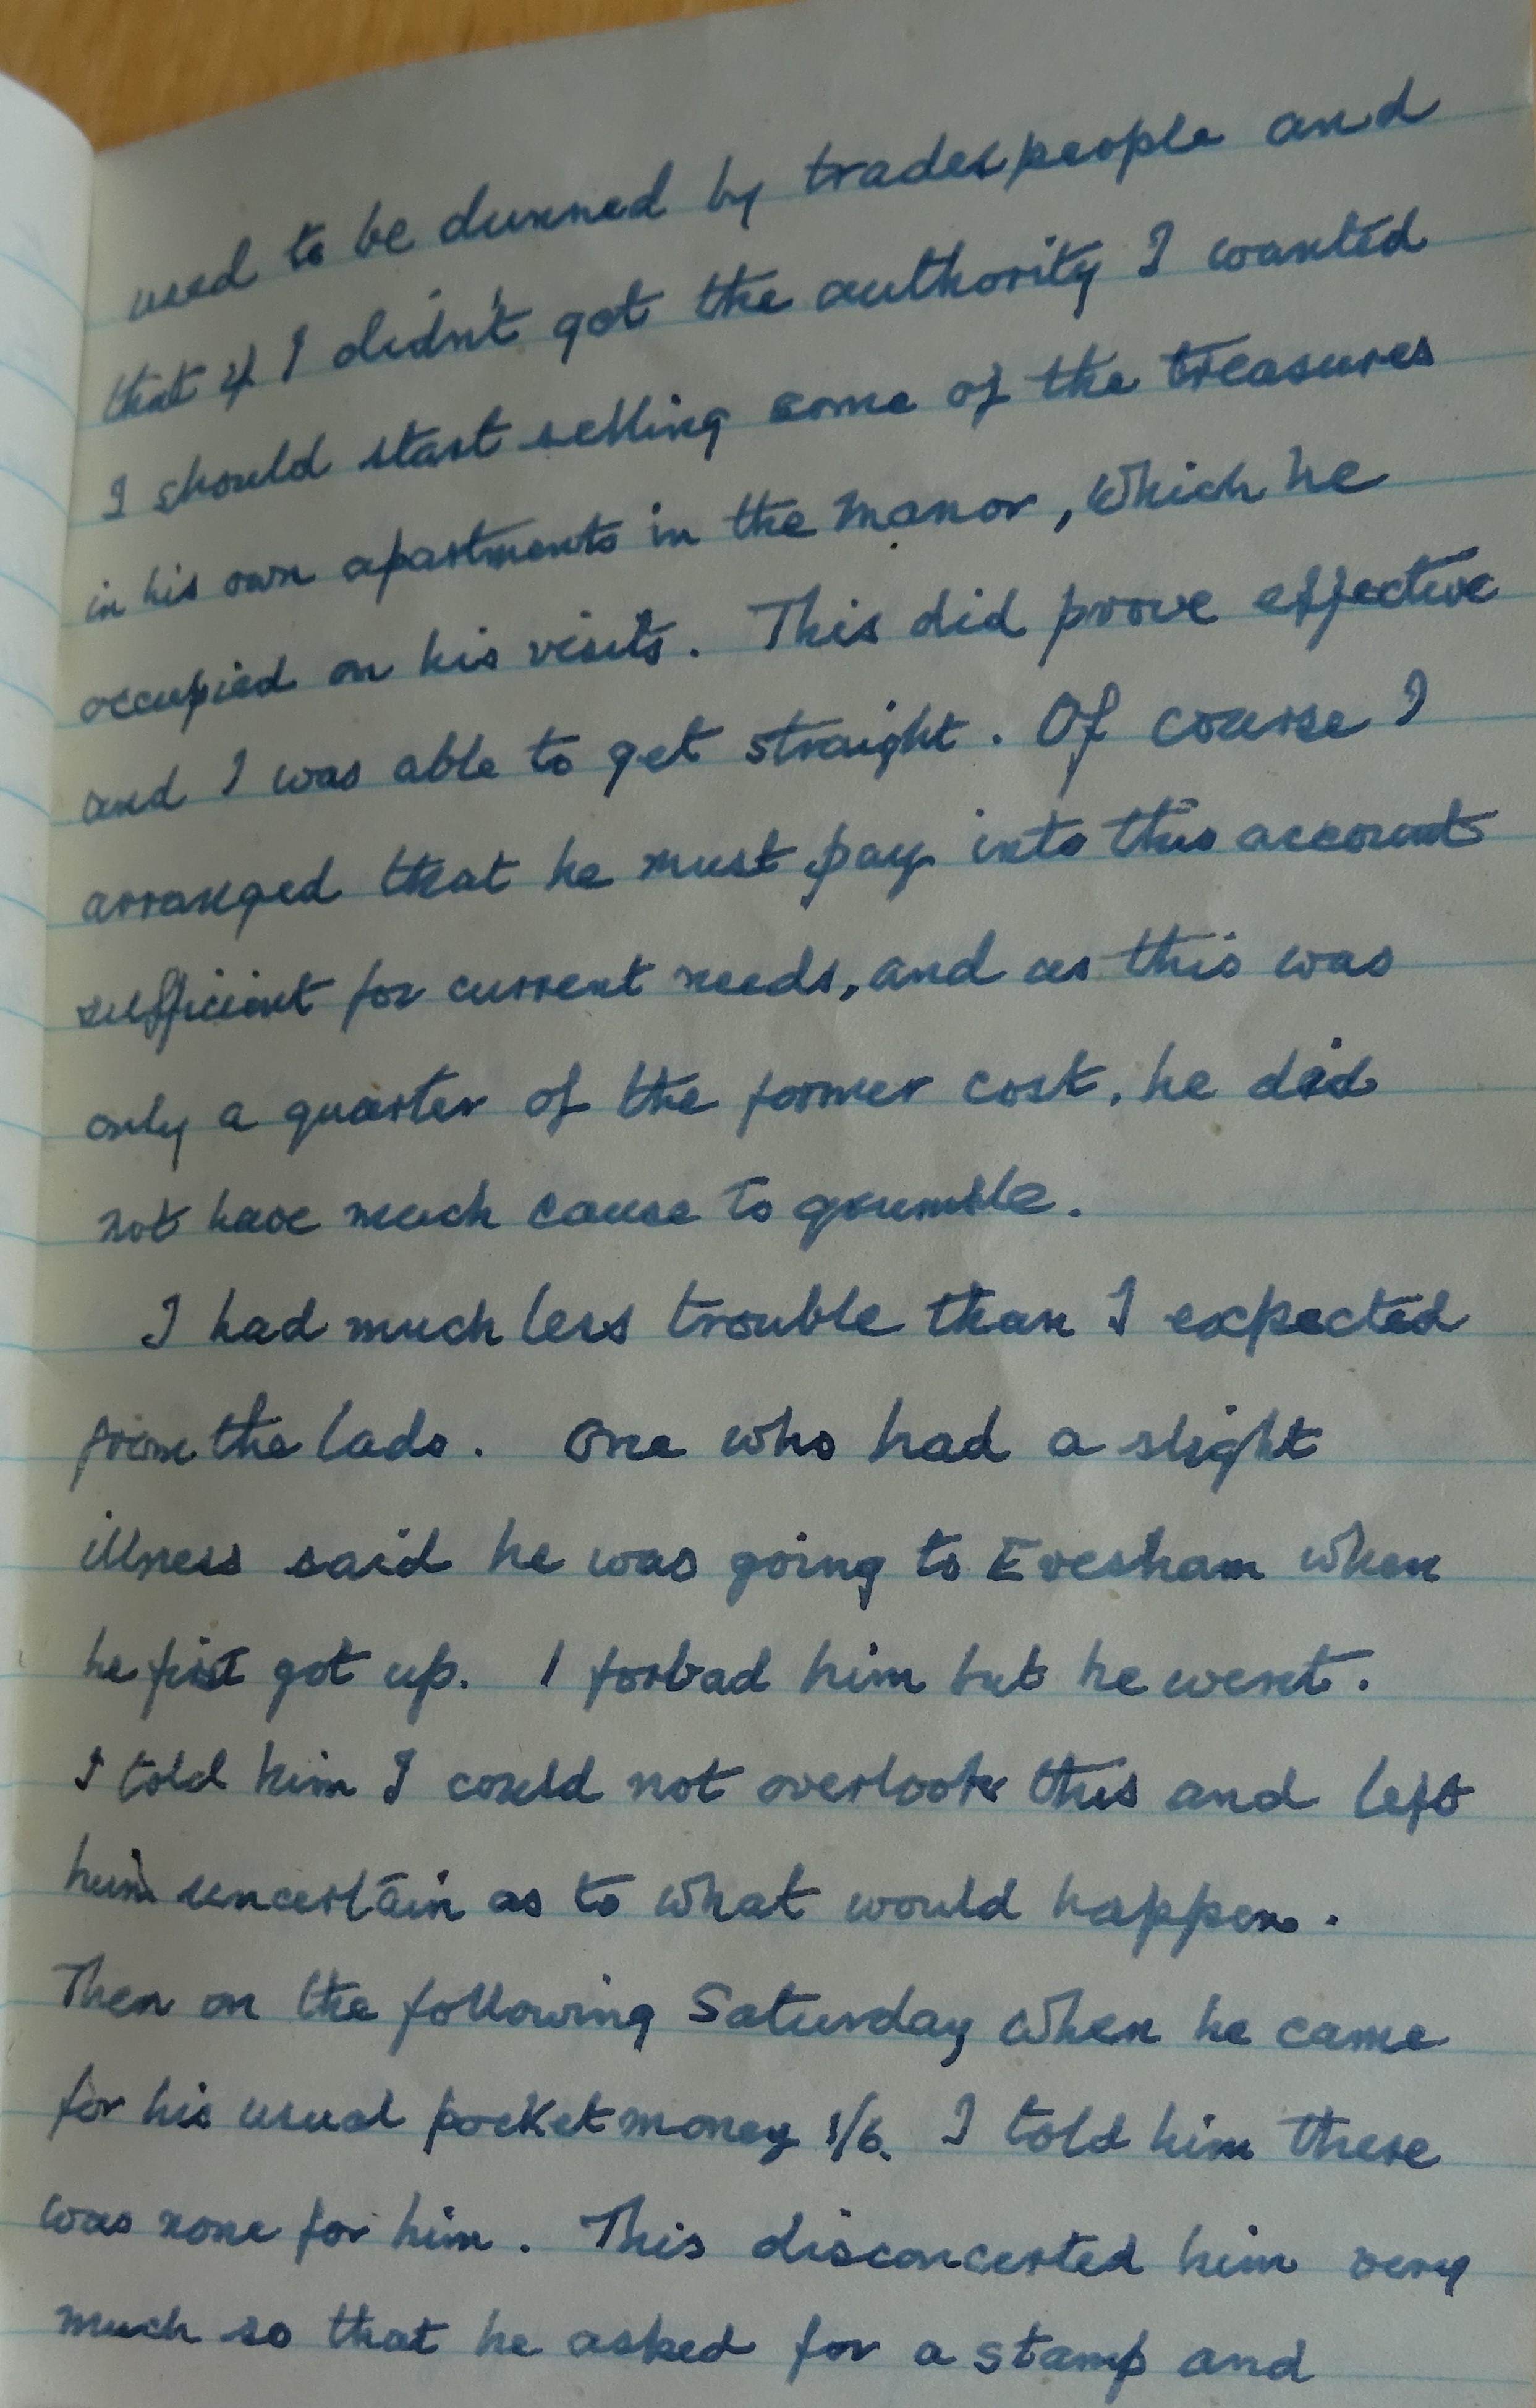 used to be dunned by tradespeople and
that if I didn't got the authority I wanted
I should start selling some of the treasures
in his own apartments in the Manor, which he
occupied on his visits. This did prove effective
and I was able to get straight. Of course I
arranged that he must pay into this account
sufficient for current needs, and as this was
only a quarter of the former cost, he did
not have much cause to grumble.
I had much less trouble than I expected
from the lads. One who had a slight
illness said he was going to Evesham when
he first got up. I forbad him but he went.
I told him I could not overlook this and left
him uncertain as to what would happen.
Then on the following Saturday when he came
for his usual pocket money 1/6. I told him there
was none for him. This disconcerted him very
much so that he asked for a stamp and